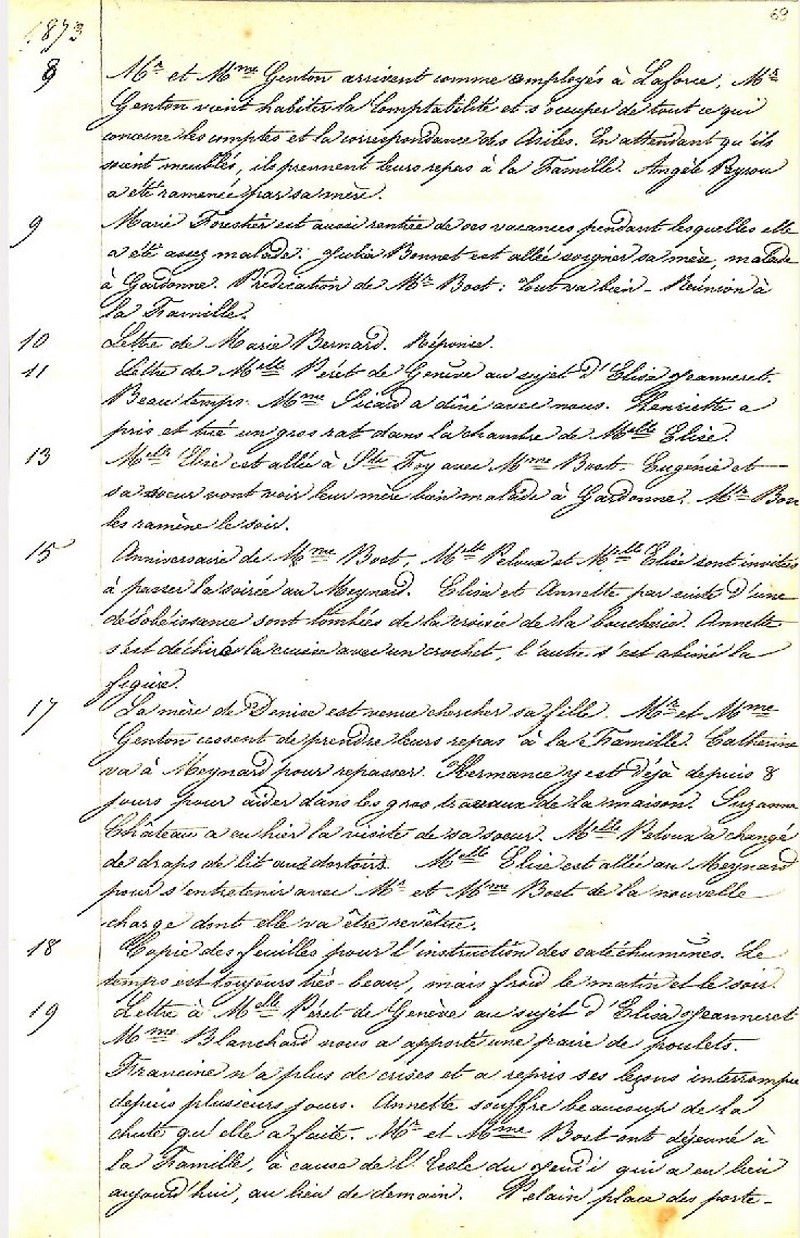 69
1873
8 Mr et Mme Genton arrivent comme employés à Laforce. Mr
Genton vient habiter la Comptabilité et s'occuper de tout ce qui
concerne les comptes et la correspondance des Asiles. En attendant qu'ils
soient meublés, ils prennent leurs repas à la Famille. Angèle Peyrou
a été ramenée par sa mère.
9 Marie Forestier est aussi rentrée de ses vacances pendant lesquelles elle
a été assez malade. Julia Bonnet est allée soigner sa mère, malade
à Gardonne. Prédication de Mr Bost : tout va bien - Réunion à
la Famille.
10 Lettre de Marie Bernard. Réponse.
11 Lettre de Melle Péret de Genève au sujet d'Elisa Jeanneret.
Beau temps. Mme Sicard a dîné avec nous. Henriette a
pris et tué un gros rat dans la chambre de Melle Elise.
13 Melle Elise est allée à Ste Foy avec Mme Bost. Eugénie et
sa soeur vont voir leur mère bien malade à Gardonne. Mr
les ramène le soir.
15 Anniversaire de Mme Bost, Melle Peloux et Melle Elise sont invitées
à passer la soirée au Meynard. Elisa et Annette par suite d'une
désobéissance sont tombées de la croisée de la boucherie. Annette
s'est déchiré la cuisse avec un crochet, l'autre s'est abîmé la
figure.
17 La mère de Denise est venue chercher sa fille. Mr et Mme
Genton cessent de prendre leurs repas à la Famille. Catherine
va à Meynard pour repasser. Hermance y est déjà depuis 8
jours pour aider dans les gros travaux de la maison. Suzanne
Château a eu hier la visite de sa soeur. Melle Peloux a changé
de draps de lit aux dortoirs. Melle Elise est allée au Meynard
pour s'entretenir avec Mr et Mme Bost de la nouvelle
charge dont elle va être revêtue.
18 Copie des feuilles pour l'instruction des catéchumènes. Le
temps est toujours très-beau, mais froid le matin et le soir.
19 Lettre à Melle Péret de Genève au sujet d'Elisa Jeanneret
Mme Blanchard nous a apporté une paire de poulets.
Francine n'a plus de crises et a repris ses leçons interrompu
depuis plusieurs jours. Annette souffre beaucoup de la
chute qu'elle a faite. Mr et Mme Bost ont déjeuné à
la Famille, à cause de l'Ecole du Jeudi qui a eu lieu
aujourd'hui, au lieu de demain. Pelain place des porte-